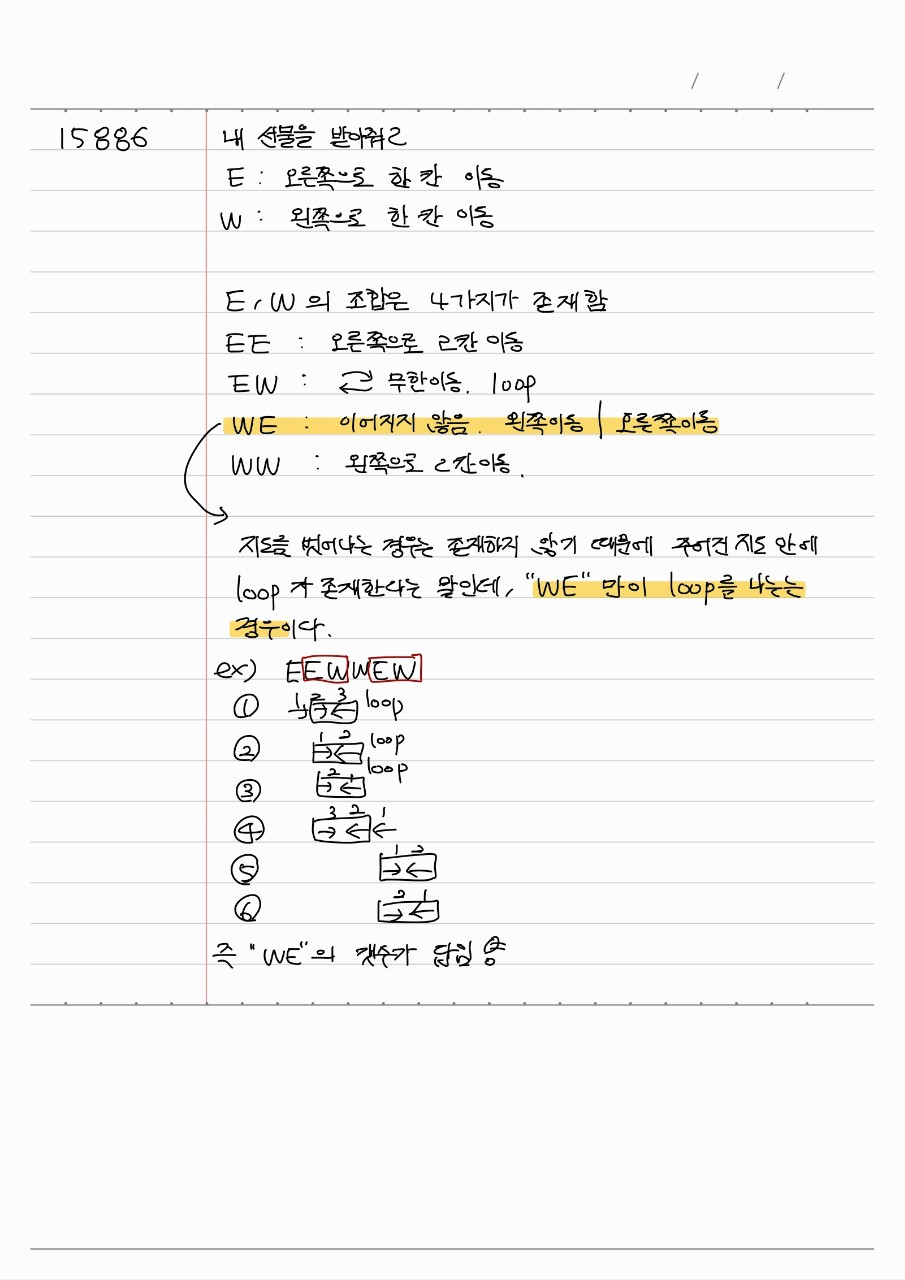 / /
15886 내 선물을 받아줘 2
E : 오른쪽으로 한 칸 이동
W : 왼쪽으로 한 칸 이동
E, W 의 조합은 4가지가 존재함
EE : 오른쪽으로 2칸 이동
EW : 무한이동. loop
WE : 이어지지 않음. 왼쪽이동 | 오른쪽이동
WW : 왼쪽으로 2칸 이동.
지도를 벗어나는 경우는 존재하지 않기 때문에 주어진 지도 안에
loop가 존재한다는 말인데, "WE" 만이 loop를 나누는
경우이다.
ex) EEWWEW
① 1 2 3 → → ← loop
② 1 2 → ← loop
③ 2 1 → ← loop
④ 3 2 1 → ← ←
⑤ 1 2 → ←
⑥ 2 1 → ←
즉 "WE"의 갯수가 답임